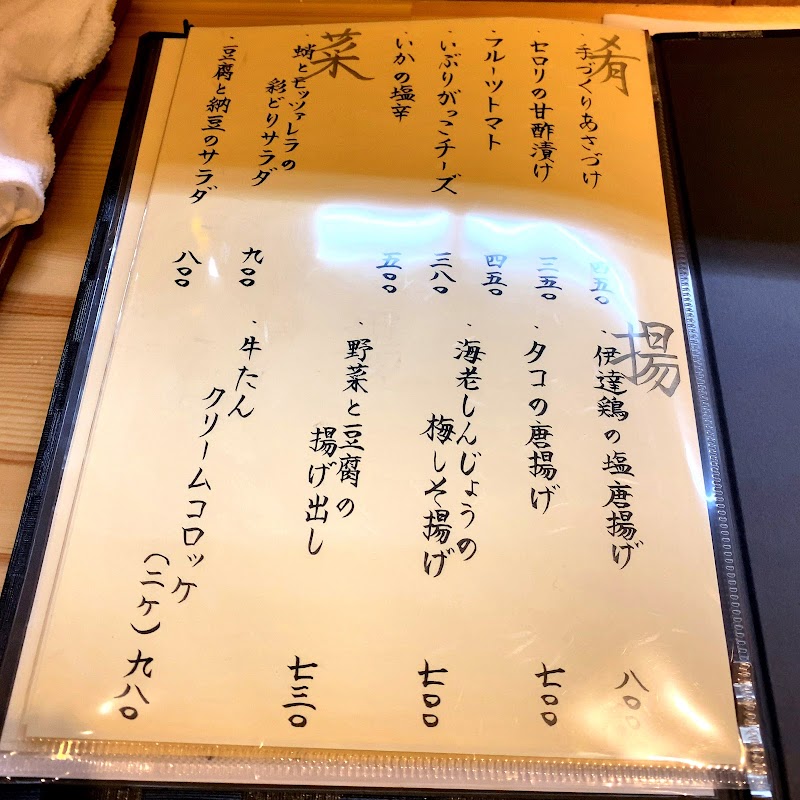 肴
・手づくりあさづけ 四五〇
・セロリの甘酢漬け 三五〇
・フルーツトマト 四五〇
・いぶりがっこチーズ 三八〇
・いかの塩辛 五〇〇
菜
・蛸とモッツァレラの
彩どりサラダ 九〇〇
・豆腐と納豆のサラダ 八〇〇
揚
・伊達鶏の塩唐揚げ 八〇〇
・タコの唐揚げ 七〇〇
・海老しんじょうの
梅しそ揚げ 七〇〇
・野菜と豆腐の
揚げ出し 七三〇
・牛たん
クリームコロッケ
(二ヶ) 九八〇